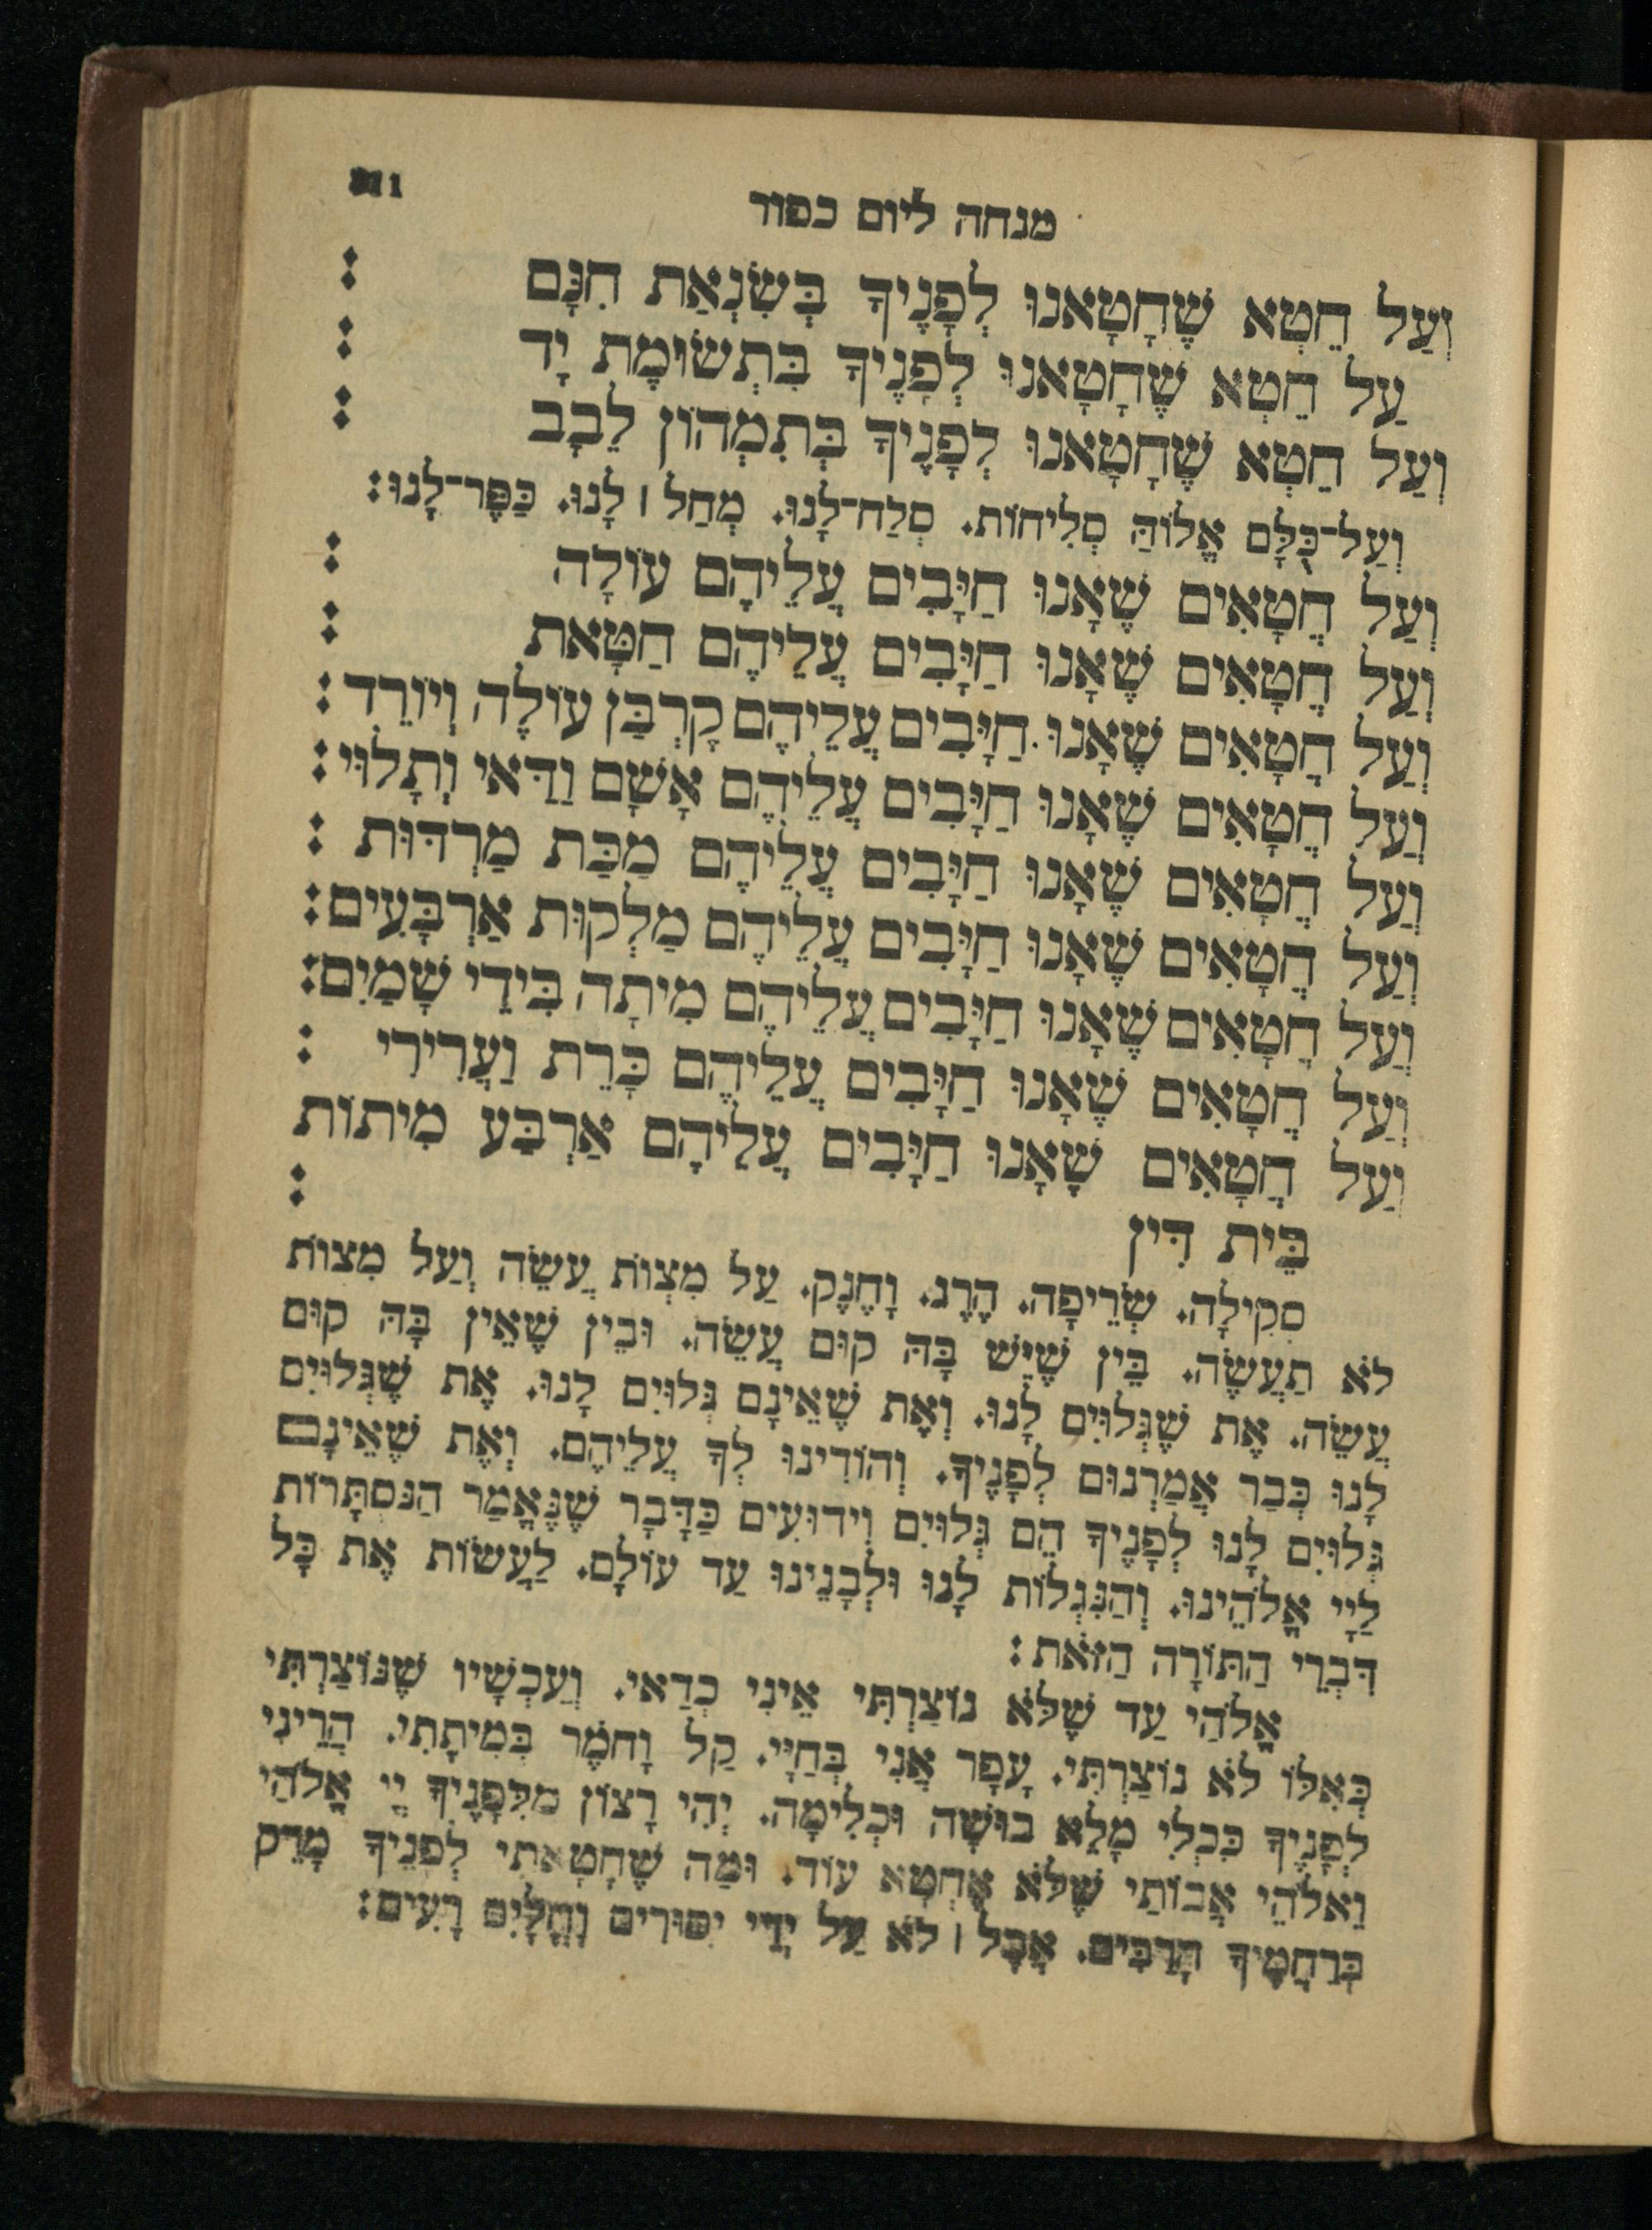 מנחה ליום כפור
וְעַל חֵטְא שֶׁחָטָאנוּ לְפָנֶיךָ בְּשִׂנְאַת חִנָּם:
עַל חֵטְא שֶׁחָטָאנוּ לְפָנֶיךָ בִּתְשׂוּמֶת יָד:
וְעַל חֵטְא שֶׁחָטָאנוּ לְפָנֶיךָ בְּתִמְהוֹן לֵבָב:
וְעַל־כֻּלָּם אֱלוֹהַּ סְלִיחוֹת. סְלַח־לָנוּ. מְחַל׀ לָנוּ. כַּפֶּר־לָנוּ:
וְעַל חֲטָאִים שֶׁאָנוּ חַיָּבִים עֲלֵיהֶם עוֹלָה:
וְעַל חֲטָאִים שֶׁאָנוּ חַיָּבִים עֲלֵיהֶם חַטָּאת:
וְעַל חֲטָאִים שֶׁאָנוּ חַיָּבִים עֲלֵיהֶם קָרְבַּן עוֹלֶה וְיוֹרֵד:
וְעַל חֲטָאִים שֶׁאָנוּ חַיָּבִים עֲלֵיהֶם אָשָׁם וַדַּאי וְתָלוּי:
וְעַל חֲטָאִים שֶׁאָנוּ חַיָּבִים עֲלֵיהֶם מַכַּת מַרְדּוּת:
וְעַל חֲטָאִים שֶׁאָנוּ חַיָּבִים עֲלֵיהֶם מַלְקוּת אַרְבָּעִים:
וְעַל חֲטָאִים שֶׁאָנוּ חַיָּבִים עֲלֵיהֶם מִיתָה בִּידֵי שָׁמַיִם:
וְעַל חֲטָאִים שֶׁאָנוּ חַיָּבִים עֲלֵיהֶם כָּרֵת וַעֲרִירִי:
וְעַל חֲטָאִים שֶׁאָנוּ חַיָּבִים עֲלֵיהֶם אַרְבַּע מִיתוֹת
בֵּית דִּין:
סְקִילָה. שְׂרֵיפָה. הֶרֶג. וָחֶנֶק. עַל מִצְוֹת עֲשֵׂה וְעַל מִצְוֹת
לֹא תַעֲשֶׂה. בֵּין שֶׁיֵּשׁ בָּהּ קוּם עֲשֵׂה. וּבֵין שֶׁאֵין בָּהּ קוּם
עֲשֵׂה. אֶת שֶׁגְּלוּיִם לָנוּ. וְאֶת שֶׁאֵינָם גְּלוּיִם לָנוּ. אֶת שֶׁגְּלוּיִם
לָנוּ כְּבַר אֲמַרְנוּם לְפָנֶיךָ. וְהוֹדִינוּ לְךָ עֲלֵיהֶם. וְאֶת שֶׁאֵינָם
גְּלוּיִם לָנוּ לְפָנֶיךָ הֵם גְּלוּיִם וִידוּעִים כַּדָּבָר שֶׁנֶּאֱמַר הַנִּסְתָּרוֹת
לַיְיָ אֱלֹהֵינוּ. וְהַנִּגְלוֹת לָנוּ וּלְבָנֵינוּ עַד עוֹלָם. לַעֲשׂוֹת אֶת כָּל
דִּבְרֵי הַתּוֹרָה הַזֹּאת:
אֱלֹהַי עַד שֶׁלֹּא נוֹצַרְתִּי אֵינִי כְדַאי. וְעַכְשָׁיו שֶׁנּוֹצַרְתִּי
כְּאִלּוּ לֹא נוֹצַרְתִּי. עָפָר אֲנִי בְּחַיָּי. קַל וָחֹמֶר בְּמִיתָתִי. הֲרֵינִי
לְפָנֶיךָ כִּכְלִי מָלֵא בוּשָׁה וּכְלִימָה. יְהִי רָצוֹן מִלְּפָנֶיךָ יְיָ אֱלֹהַי
וֵאלֹהֵי אֲבוֹתַי שֶׁלֹּא אֶחֱטָא עוֹד. וּמַה שֶׁחָטָאתִי לְפָנֶיךָ מָרֵק
בְּרַחֲמֶיךָ הָרַבִּים. אֲבָל׀ לֹא עַל יְדֵי יִסּוּרִים וָחֳלָיִם רָעִים: